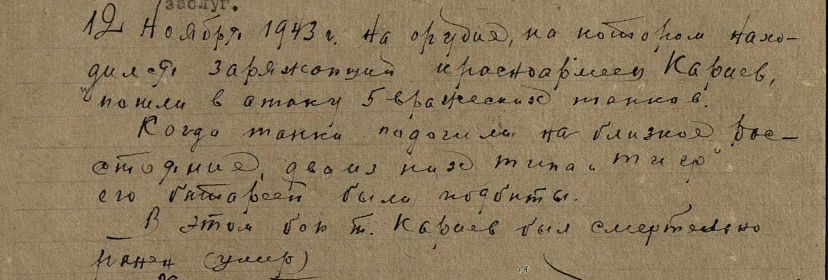 заслуг.
12 Ноября 1943 г. на орудие, на котором нахо-
дился заряжающий красноармеец Караев,
пошли в атаку 5 вражеских танков.
Когда танки подошли на близкое рас-
стояние, два из них типа "тигр"
его батареей были подбиты.
В этом бою т. Караев был смертельно
ранен (умер)